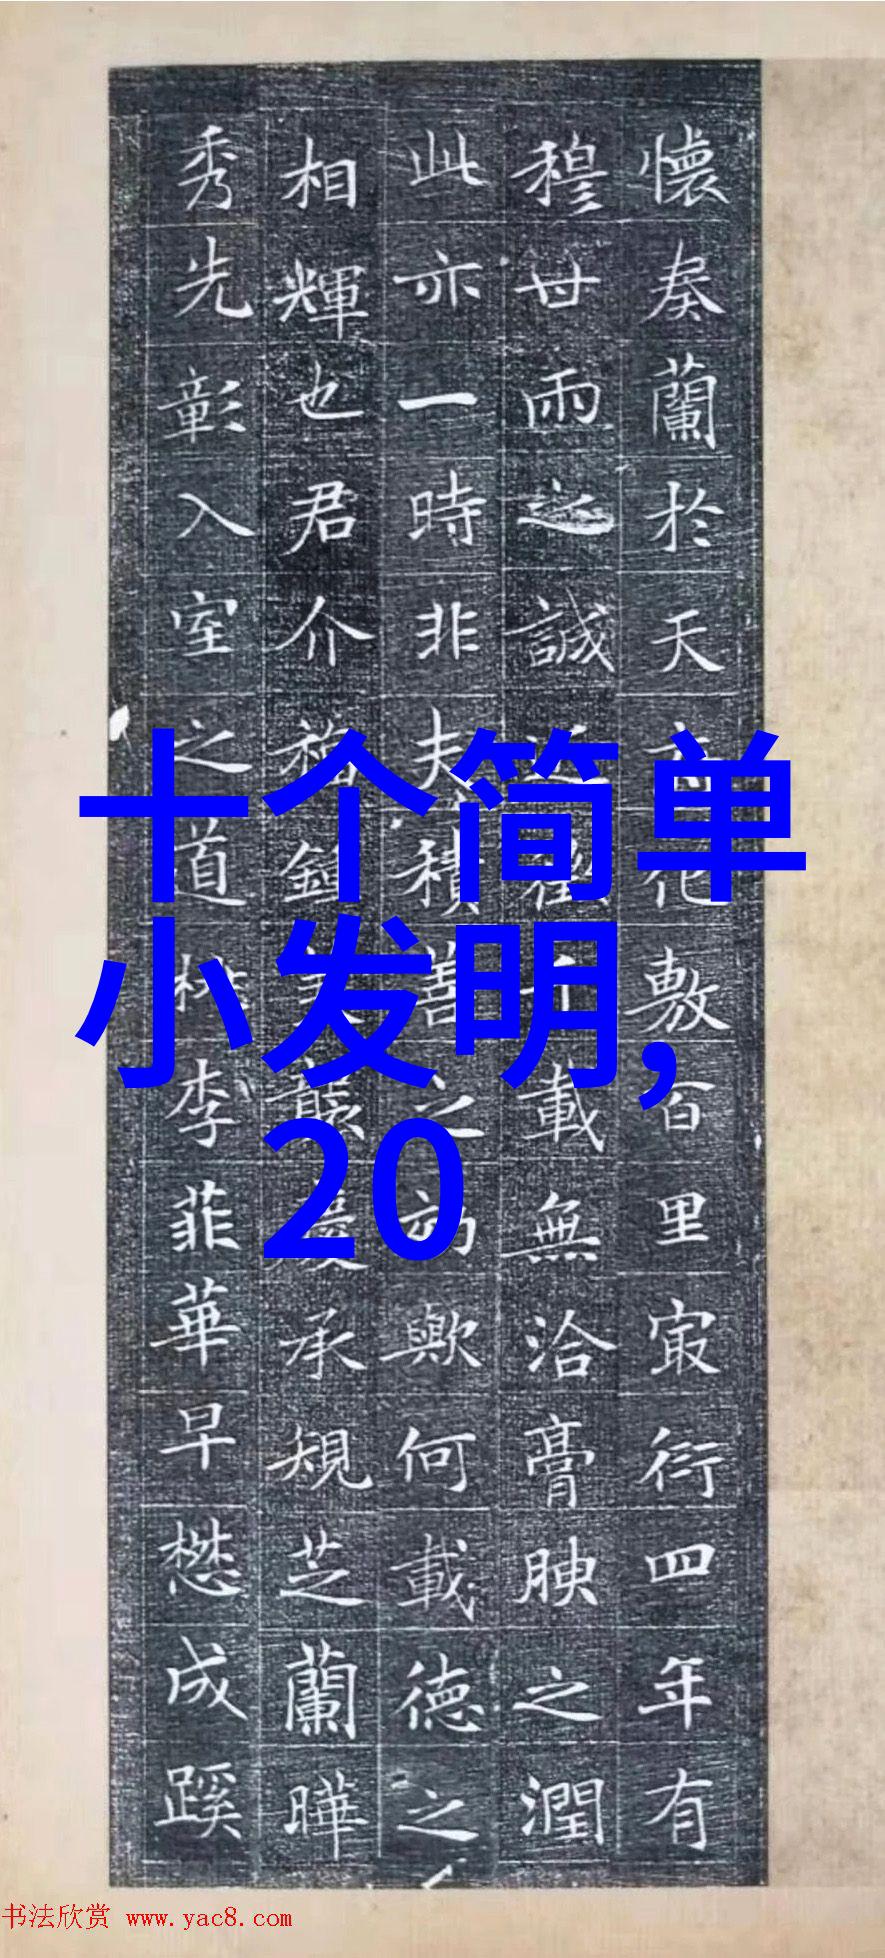 懷奏蘭於天化敷百里㝡衍四年有
穆甘雨之誠載無洽膏腴之潤
此亦一時非夫積善之歟何載德之
相輝也君介承規芝蘭曄
秀先彰入室之道桃李菲華早懋成蹊
十个简单
小发明,
20
书法欣赏 www.yac8.com